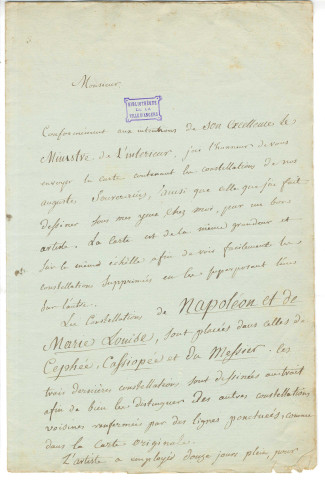 Monsieur,
BIBLIOTHÈQUE
DE LA
VILLE D'ANGERS
Conformément aux intentions de Son Excellence le
Ministre de L'intérieur, j'ai l'honneur de vous
envoyer la carte contenant les constellations de nos
augustes Souverains, ainsi que celle que j'ai fait
dessiner sous mes yeux, chez moi, par un bon
artiste. La carte est de la même grandeur et
sur la même échelle afin de voir facilement les
constellations supprimées en les superposant l'une
sur l'autre.
Les Constellations de Napoléon et de
Marie Louise, sont placées dans celles de
Cephée, Cassiopée et du Messier. les
trois dernières constellations sont dessinées au trait
afin de bien les distinguer des autres constellations
voisines renfermées par des lignes ponctuées, comme
dans la carte originale.
L'artiste a employé douze jours pleins, pour